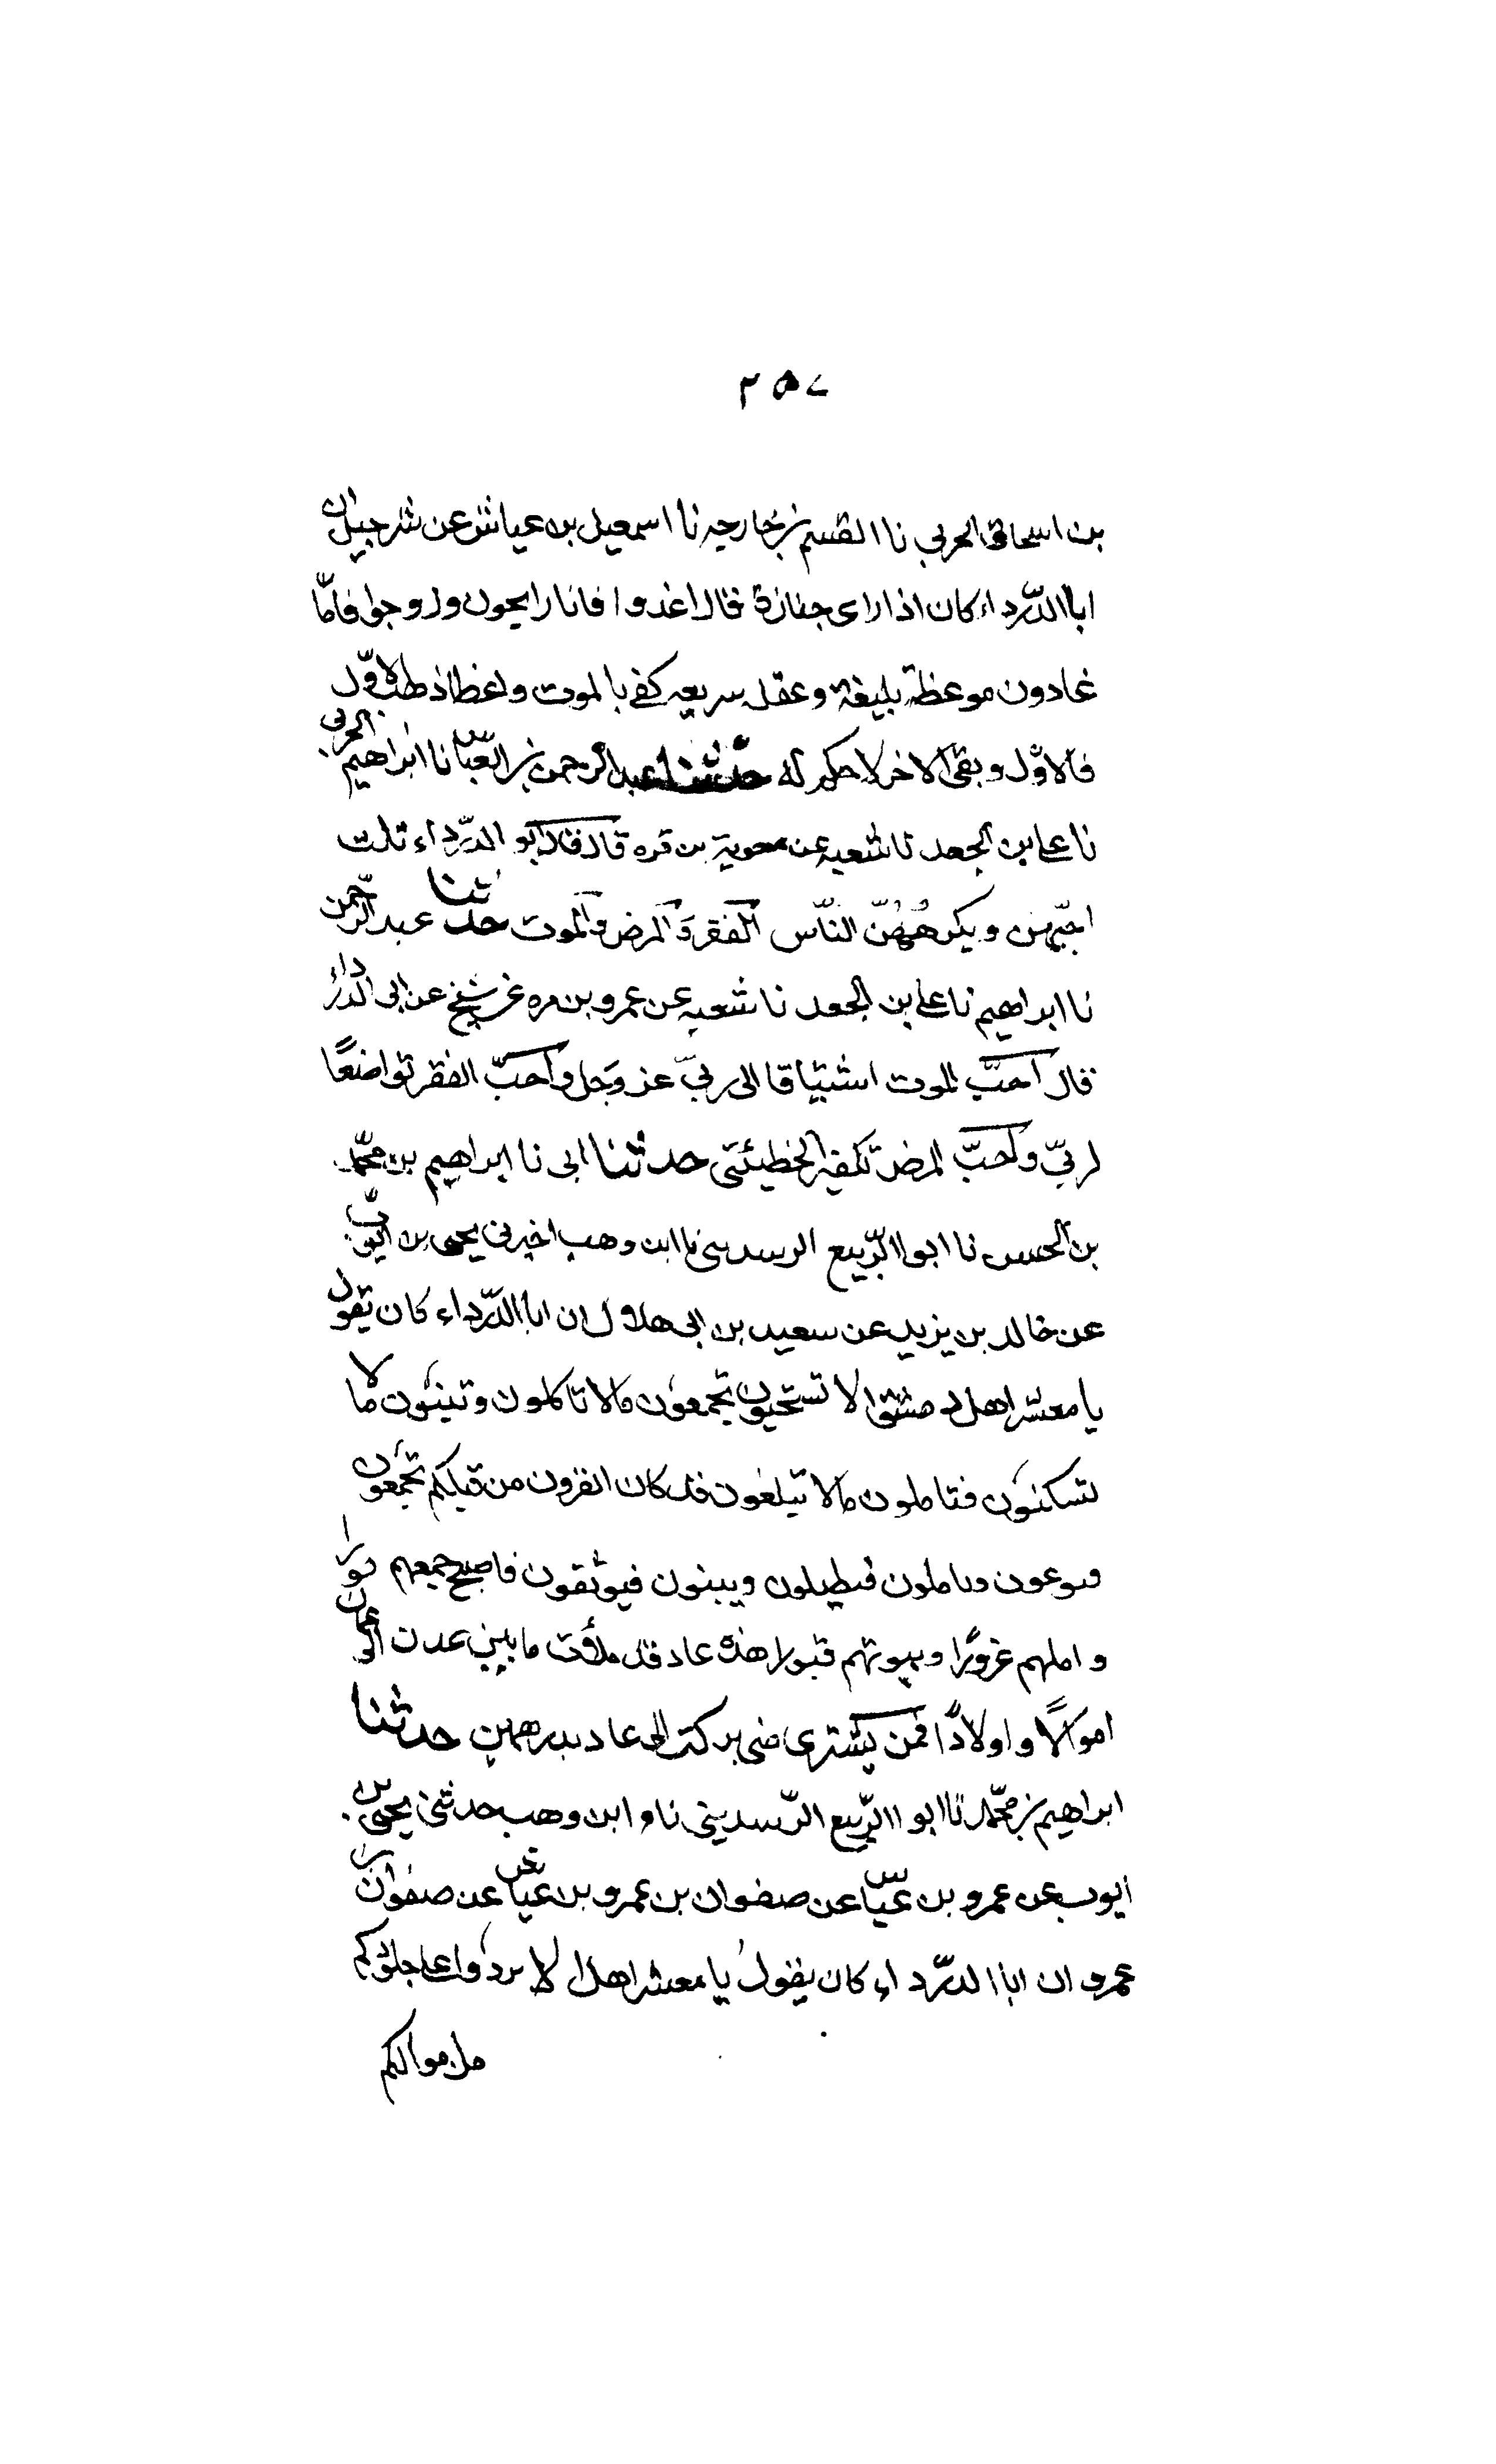 ٢٥٧
بن اسحاق الحربي نا القسم بن خارجه نا اسمعيل بن عياش عن شرحبيل ان
ابا الدّرداء كان اذا راى جنازة قال اغدوا فانا رايحون وروحوا فانّا
غادون موعظة بليغة وعقله سريعه كفى بالموت واعظا ذهب الاوّل
فالاوّل وبقى الاخر لا حلم له حدّثنا عبد الرحمن بن العبّاس نا ابراهيم الحربي
نا على بن الجعد نا شعبه عن معوية بن قره قال قال ابو الدّرداء ثلث
احبّهن ويكرههُنّ النّاس الفقر وَالمرض وَالموت حدثنا عبد الرّحمن
نا ابراهيم نا على بن الجعد نا شعبه عن عمرو بن مره عن شيخ عن ابى الدرداء
قال احبّ الموت اشتياقا الى ربّي عز وَجل واحبّ الفقر تواضعًا
لربّي واحبّ المرض تكفيرا لخطيئتى حدثنا ابى نا ابراهيم بن محمّد
بن الحسن نا ابو الرّبيع الرسدينى نا ابن وهب اخبرنى يحيى بن ايّوب
عن خالد بن يزيد عن سعيد بن ابى هلال ان ابا الدّرداء كان يقول
يا معشر اهل دمشق الا تستحيون تجمعون مالا تاكلون وتبنُون مالا
تسكنون فتاملون مالا تبلغون قد كان القرون من قبلكم تجمعون
فيوعون وياملون فيطيلون ويبنون فيوثقون فاصبح جمعهم بورا
واملهم غرورًا وبيوتهم قبورا هذه عاد قد ملأت ما بين عدن الى عمان
اموَالًا واولادًا فمن يشترى منى بركت ال عاد بدرهمين حدثنا
ابراهيم بن محمّد نا ابو الرّبيع الرّسدينى نا ابن وهب حدثنى يحيى بن
ايوب عن عمرو بن عيّاس عن صفوان بن عمرو بن عيّاش عن صفوان بن
عمرو ان ابا الدّرداء كان يقول يا معشر اهل الا
من اموالكم